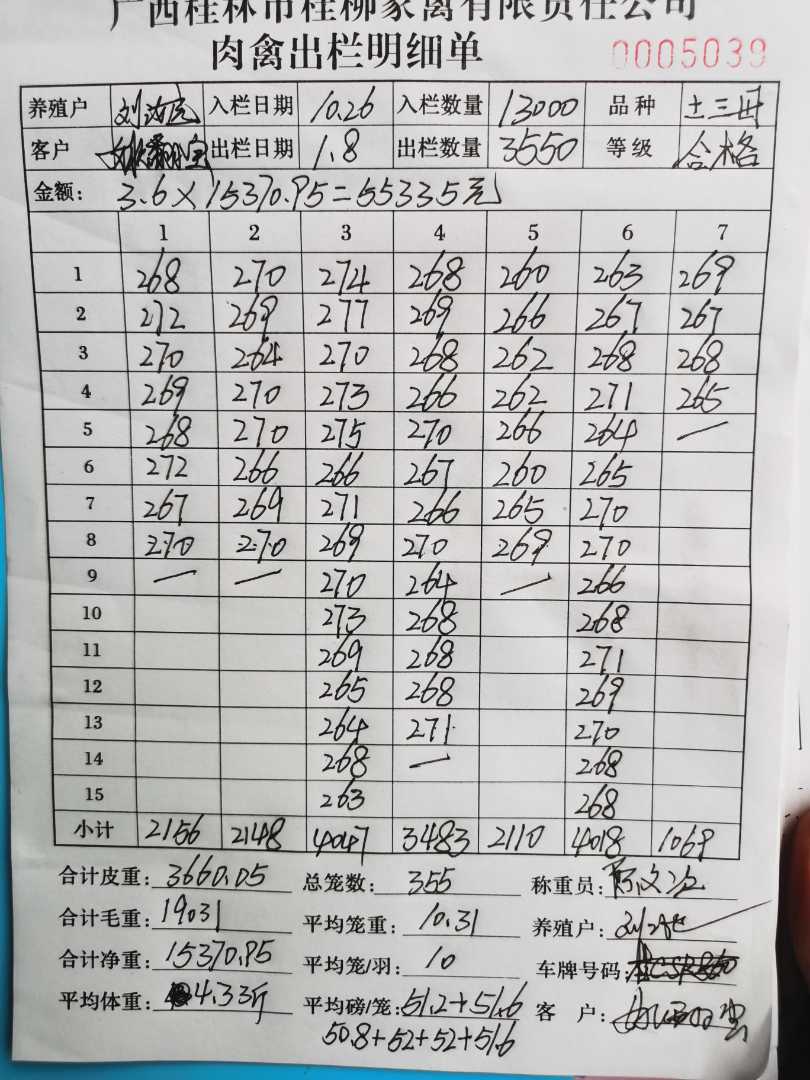 广西桂林市桂柳家禽有限责任公司
肉禽出栏明细单 0005039
养殖户 刘 入栏日期 10.26 入栏数量 13000 品种 土三
客户 出栏日期 1.8 出栏数量 3550 等级 合格
金额: 3.6×15370.95=55335元
1 2 3 4 5 6 7
1 268 270 274 268 260 263 269
2 272 269 277 269 266 267 267
3 270 264 270 268 262 268 268
4 269 270 273 266 262 271 265
5 268 270 275 270 266 264 —
6 272 266 266 267 260 265
7 267 269 271 266 265 270
8 270 270 269 270 269 270
9 — — 270 264 — 266
10 273 268 268
11 269 268 271
12 265 268 269
13 264 271 270
14 268 — 268
15 263 268
小计 2156 2148 4047 3483 2110 4018 1069
合计皮重: 3660.05 总笼数: 355 称重员:
合计毛重: 19031 平均笼重: 10.31 养殖户: 刘
合计净重: 15370.95 平均笼/羽: 10 车牌号码:
平均体重: 4.33斤 平均磅/笼: 51.2+51.6 客 户:
50.8+52+52+51.6